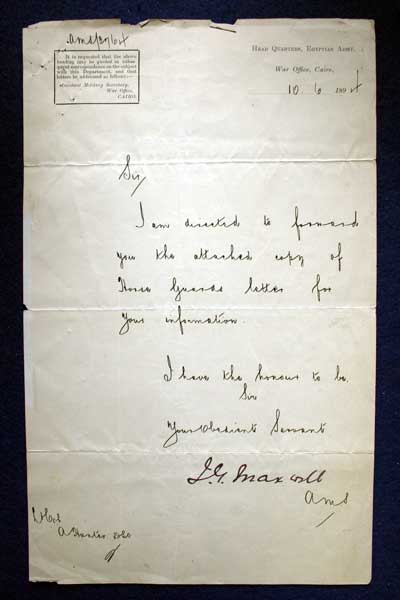 AMS/3764
It is requested that the above
heading may be quoted in subse-
quent correspondence on the subject
with this Department, and that
letters be addressed as follows:—
Assistant Military Secretary,
War Office,
CAIRO.
HEAD QUARTERS, EGYPTIAN ARMY.
War Office, Cairo,
10 6 1894
Sir
I am directed to forward
you the attached copy of
Horse Guards letter for
your information.
I have the honour to be
Sir
Your Obedient Servant
J.G. Maxwell
AMS
A Hunter